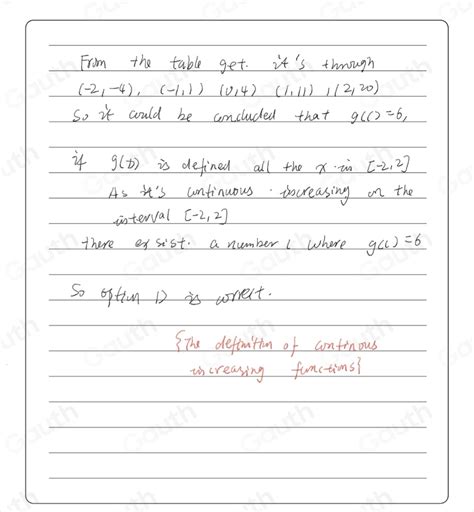 From the table get. it's through
(-2,-4), (-1,1) (0,4) (1,11), (2,20)
So it could be concluded that g(c)=6,
if g(x) is defined all the x in [-2,2]
As it's continuous increasing on the
interval [-2,2]
there exsist. a number c where g(c)=6
So option D is correct.
{The definition of continous
increasing functions}